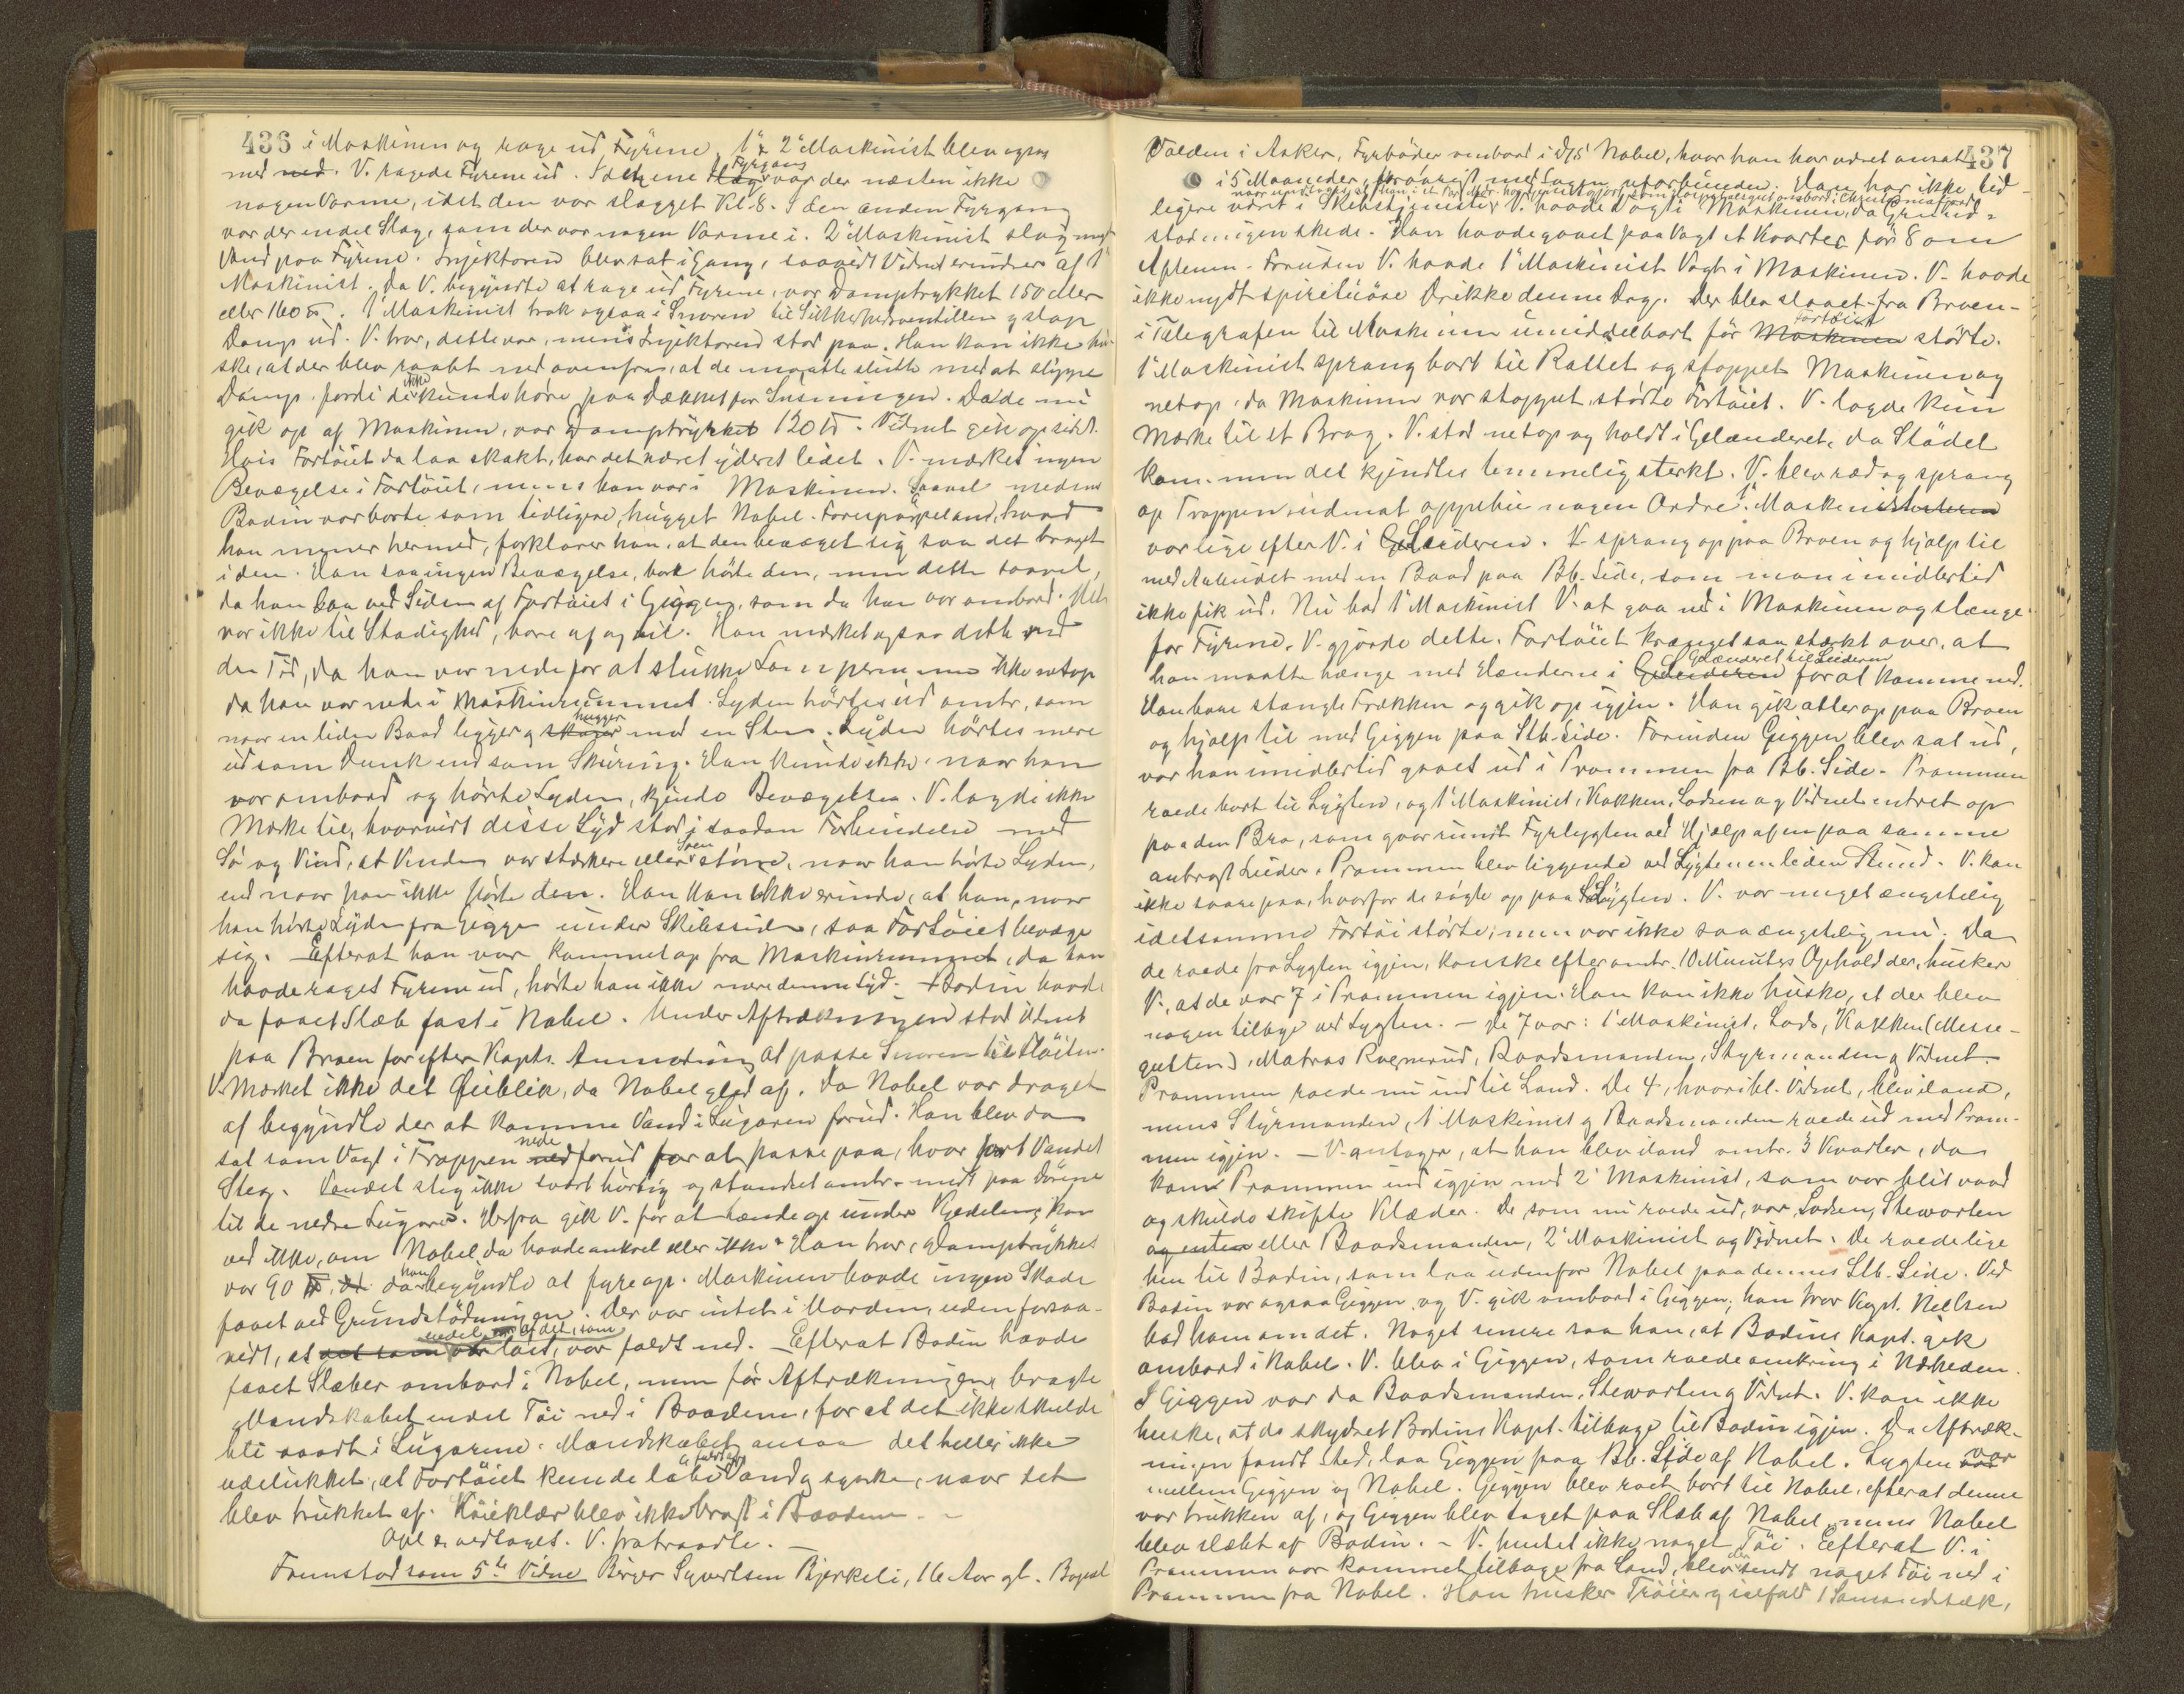 436 i Maskinen og rage ud Fyrene. 1ste & 2den Maskinist blev ogsaa
med ned. V. ragede Fyrene ud. I den ene Slag Fyrgang var der næsten ikke
nogen Varme, idet den var slagget Kl. 8. I den anden Fyrgang
var der endel Slag, som der var nogen Varme i. 2den Maskinist slog
Vand paa Fyrene. Injektoren blev sat i Gang, saavidt Vidnet erindrer af 1ste
Maskinist. Da V. begyndte at rage ud Fyrene, var Damptrykket 150 eller
eller 160 ℔. 1ste Maskinist trak ogsaa i Snoren til Sikkerhedsventillen og slap
Damp ud. V. tror, dette var, mens Injektoren stod paa. Han kan ikke hu-
ske, at der blev raabt ned ovenfra, at de maatte slutte med at slippe
Damp, fordi de ikke kunde høre paa Dækket for Susningen. Da de nu
gik op af Maskinen, var Damptrykket 120 ℔. Vidnet gik op sidst.
Hvis Fartøiet da laa skakt, har det været yderst lidet. V. mærket ingen
Bevægelse i Fartøiet, mens han var i Maskinen. Saavel medens
Bodin var borte som tidligere, hugget Nobel. Forespørgeland, hvad
han mener hermed, forklarer han, at den bevæget sig saa det braget
i den. Han saa ingen Bevægelse, bare hørte den, men dette saavel,
da han laa ved Siden af Fartøiet i Giggen, som da han var ombord. Det
var ikke til Stadighed, bare af og til. Han mærket ogsaa dette ved
den Tid, da han var nede for at slukke Lamperne men ikke netop
da han var nede i Maskinrummet. Lyden hørtes ud omtr. som
naar en liden Baad ligger og skurer hugger mod en Sten. Lyden hørtes mere
ud som Dunk end som Skuring. Han kunde ikke, naar han
var ombord og hørte Lyden, kjende Bevægelsen. V. lagde ikke
Mærke til, hvorvidt disse Lyd stod i saadan Forbindelse med
Sø og Vind, at Vinden var stærkere eller Søen større, naar han hørte Lyden,
end naar han ikke hørte den. Han kan ikke erindre, at han, naar
han hørte Lyden fra Giggen under Skibssiden, saa Fartøiet bevæge
sig. Efterat han var kommet op fra Maskinrummet, da han
havde raget Fyrene ud, hørte han ikke mere denne Lyd. Bodin havde
da faaet Slæb fast i Nobel. Under Aftrækningen stod Vidnet
paa Broen for efter Kapts. Anmodning at passe Snoren til Fløiten.
V. Mærket ikke det Øieblik, da Nobel gled af. Da Nobel var draget
af begyndte der at komme Vand i Lugaren forud. Han blev da
sat som Vagt i Trappen ned nede forud for at passe paa, hvor fort Vandet
Steg. Vandet steg ikke svært hurtig og standset omtr. midt paa Dørene
til de nedre Lugarer. Herfra gik V. for at tænde op under Kjedelen; kan
ved ikke, om Nobel da havde ankret eller ikke. Han tror, Damptrykket
var 90 ℔, da han begyndte at fyre op. Maskinen havde ingen Skade
faaet ved Grundstødningen. Der var intet i Uorden, uden forsaa-
vidt, at det som var endel af det, som løst, var faldt ned. Efterat Bodin havde
faaet Slæber ombord i Nobel, men før Aftrækningen, bragte
Mandskabet endel Tøi ned i Baadene, for at det ikke skulde
bli vaadt i Lugarene. Mandskabet ansaa det heller ikke
udelukket, at Fartøiet kunde løbe Vand og synke, naar det
blev trukket af. Køieklær blev ikke bragt i Baadene. –
Opl. & vedtaget. V. fratraadte. –
Fremstod som 5te Vidne Birger Syvertsen Bjerkeli, 16 Aar gl. Bopæl
437
Valden i Asker, Fyrbøder ombord i D/S Nobel, hvor han har været ansat
i 5 Maaneder, forøvrigt med Sagen uforbunden. Han har ikke tid-
ligere været i Skibstjeneste. V. havde Vagt i Maskinen, da Grund-
stødningen skede. Han havde gaaet paa Vagt et Kvarter før 8 om
Aftenen. Foruden V. havde 1ste Maskinist Vagt i Maskinen. V. havde
ikke nydt spirituøse Drikke denne Dag. Der blev slaaet fra Broen
i Telegrafen til Maskinen umiddelbart før Maskinen Fartøiet stødte.
1ste Maskinist sprang bort til Rattet og stoppet Maskinen og
netop, da Maskinen var stoppet, stødte Fartøiet. V. lagde kun
Mærke til et Brag. V. stod netop og holdt i Gelænderet, da Stødet
kom, men det kjendtes temmelig sterkt. V. blev ræd og sprang
op Trappen uden at oppebie nogen Ordre. 1ste Maskinisten
var lige efter V. i Leideren. V. sprang op paa Broen og hjalp til
med Arbeidet med en Baad paa Bb. Side, som man imidlertid
ikke fik ud. Nu bad 1ste Maskinist V. at gaa ned i Maskinen og stænge
for Fyrene. V. gjorde dette. Fartøiet krænget saa stærkt over, at
han maatte hænge med Hænderne i Geleideren Gelænderet til Leideren for at komme ned.
Han bare stængte Trækken og gik op igjen. Han gik atter op paa Broen
og hjalp til med Giggen paa Stb. Side. Forinden Giggen blev sat ud,
var han imidlertid gaaet ud i Prammen fra Bb. Side. Prammen
roede bort til Lygten, og 1ste Maskinist, Kokken, Lodsen og Vidnet entret op
paa den Bro, som gaar rundt Fyrlygten ved Hjælp af en paa samme
anbragt Leider. Prammen blev liggende ved Lygten en liden Stund. V. kan
ikke svare paa, hvorfor de søgte op paa Lygten. V. var meget ængstelig
idetsamme Fartøi stødte; men var ikke saa ængstelig nu. Da
de roede fra Lygten igjen, kanske efter omtr. 10 Minuters Ophold der, husker
V., at de var 7 i Prammen igjen. Han kan ikke huske, at der blev
nogen tilbage ved Lygten. – De 7 var: 1ste Maskinist, Lods, Kokken (Messe-
gutten), Matros Rognerud, Baadsmanden, Styrmanden & Vidnet
Prammen roede nu ind til Land. De 4, hvoribl. Vidnet, blev iland,
mens Styrmanden, 1ste Maskinist & Baadsmanden roede ud med Pram-
men igjen. – V. antager, at han blev iland omtr. 3 Kvarter, da
kom Prammen ind igjen med 2den Maskinist, som var blit vaad
og skulde skifte Klæder. De som nu roede ud, var Lodsen, Stewarten
og enten eller Baadsmanden, 2den Maskinist og Vidnet. De roede lige
hen til Bodin, som laa udenfor Nobel paa dennes Stb. Side. Ved
Bodin var ogsaa Giggen, og V. gik ombord i Giggen; han tror Kapt. Nielsen
bad ham om det. Noget senere saa han, at Bodins Kapt. gik
ombord i Nobel. V. blev i Giggen, som roede omkring i Nærheden.
I Giggen var da Baadsmanden, Stewarten & Vidnet. V. kan ikke
huske, at de skydset Bodins Kapt. tilbage til Bodin igjen. Da Aftræk-
ningen fandt Sted, laa Giggen paa Bb. Side af Nobel. Lygten var
mellem Giggen og Nobel. Giggen blev roet bort til Nobel, efterat denne
var trukken af, og Giggen blev taget paa Slæb af Nobel, mens Nobel
blev slæbt af Bodin. – V. hentet ikke noget Tøi. Efterat V. i
Prammen var kommet tilbage fra Land, blev der sendt noget Tøi ned i
Prammen fra Nobel. Han husker Trøier & isefald 1 Sømandssæk,